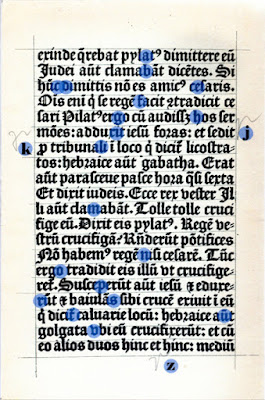 exinde q̄rebat pylatꝰ dimittere eū
Judei aūt clamabāt dicētes. Si
hūc dimittis nō es amicꝰ cesaris.
Oīs eni q̄ se regē facit ꝛtradicit ce
sari Pilatꝰergo cū audissꝫ hos ser
mōes: adduxit iesū foras: et sedit
k p tribunali i loco q̄ dicit̄ licostra- j
tos: hebraice aūt gabatha. Erat
aūt parasceue pasce hora q̄si sexta
Et dixit iudeis. Ecce rex vester Il
li aūt clamabāt. Tolle tolle cruci
fige eū. Dixit eis pylatꝰ. Regē ve-
strū crucifigā? Rn̄derūt pōtifices
Nō habemꝰ regē nisi cesarē. Tūc
ergo tradidit eis illū vt crucifige-
ret̄. Susceperūt aūt iesū ⁊ eduxe-
rūt ⁊ baiulās sibi crucē exiuit i eū
q̄ dicit̄ caluarie locū: hebraice aūt
golgata vbi eū crucifixerūt: et cū
eo alios duos hinc et hinc: mediū
z